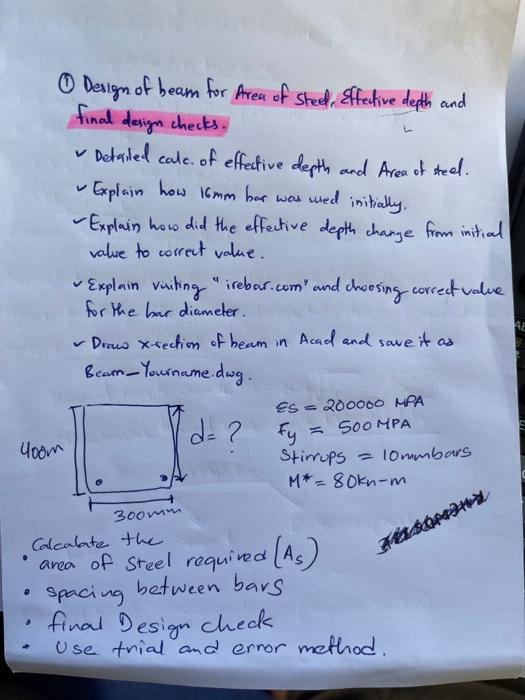 ① Design of beam for Area of steel, Effective depth and
final design checks.
✓ Detailed calc. of effective depth and Area of steel.
✓ Explain how 16mm bar was used initially.
✓ Explain how did the effective depth change from initial
value to correct value.
✓ Explain visiting "irebar.com" and choosing correct value
for the bar diameter.
✓ Draw x-section of beam in Acad and save it as
Beam_Yourname.dwg.
ES = 200000 MPA
d = ?
Fy = 500 MPA
400m
Stirrups = 10mmbars
M* = 80kn-m
300mm
Calcalate the
• area of steel required (As)
• spacing between bars
• final Design check
• Use trial and error method.